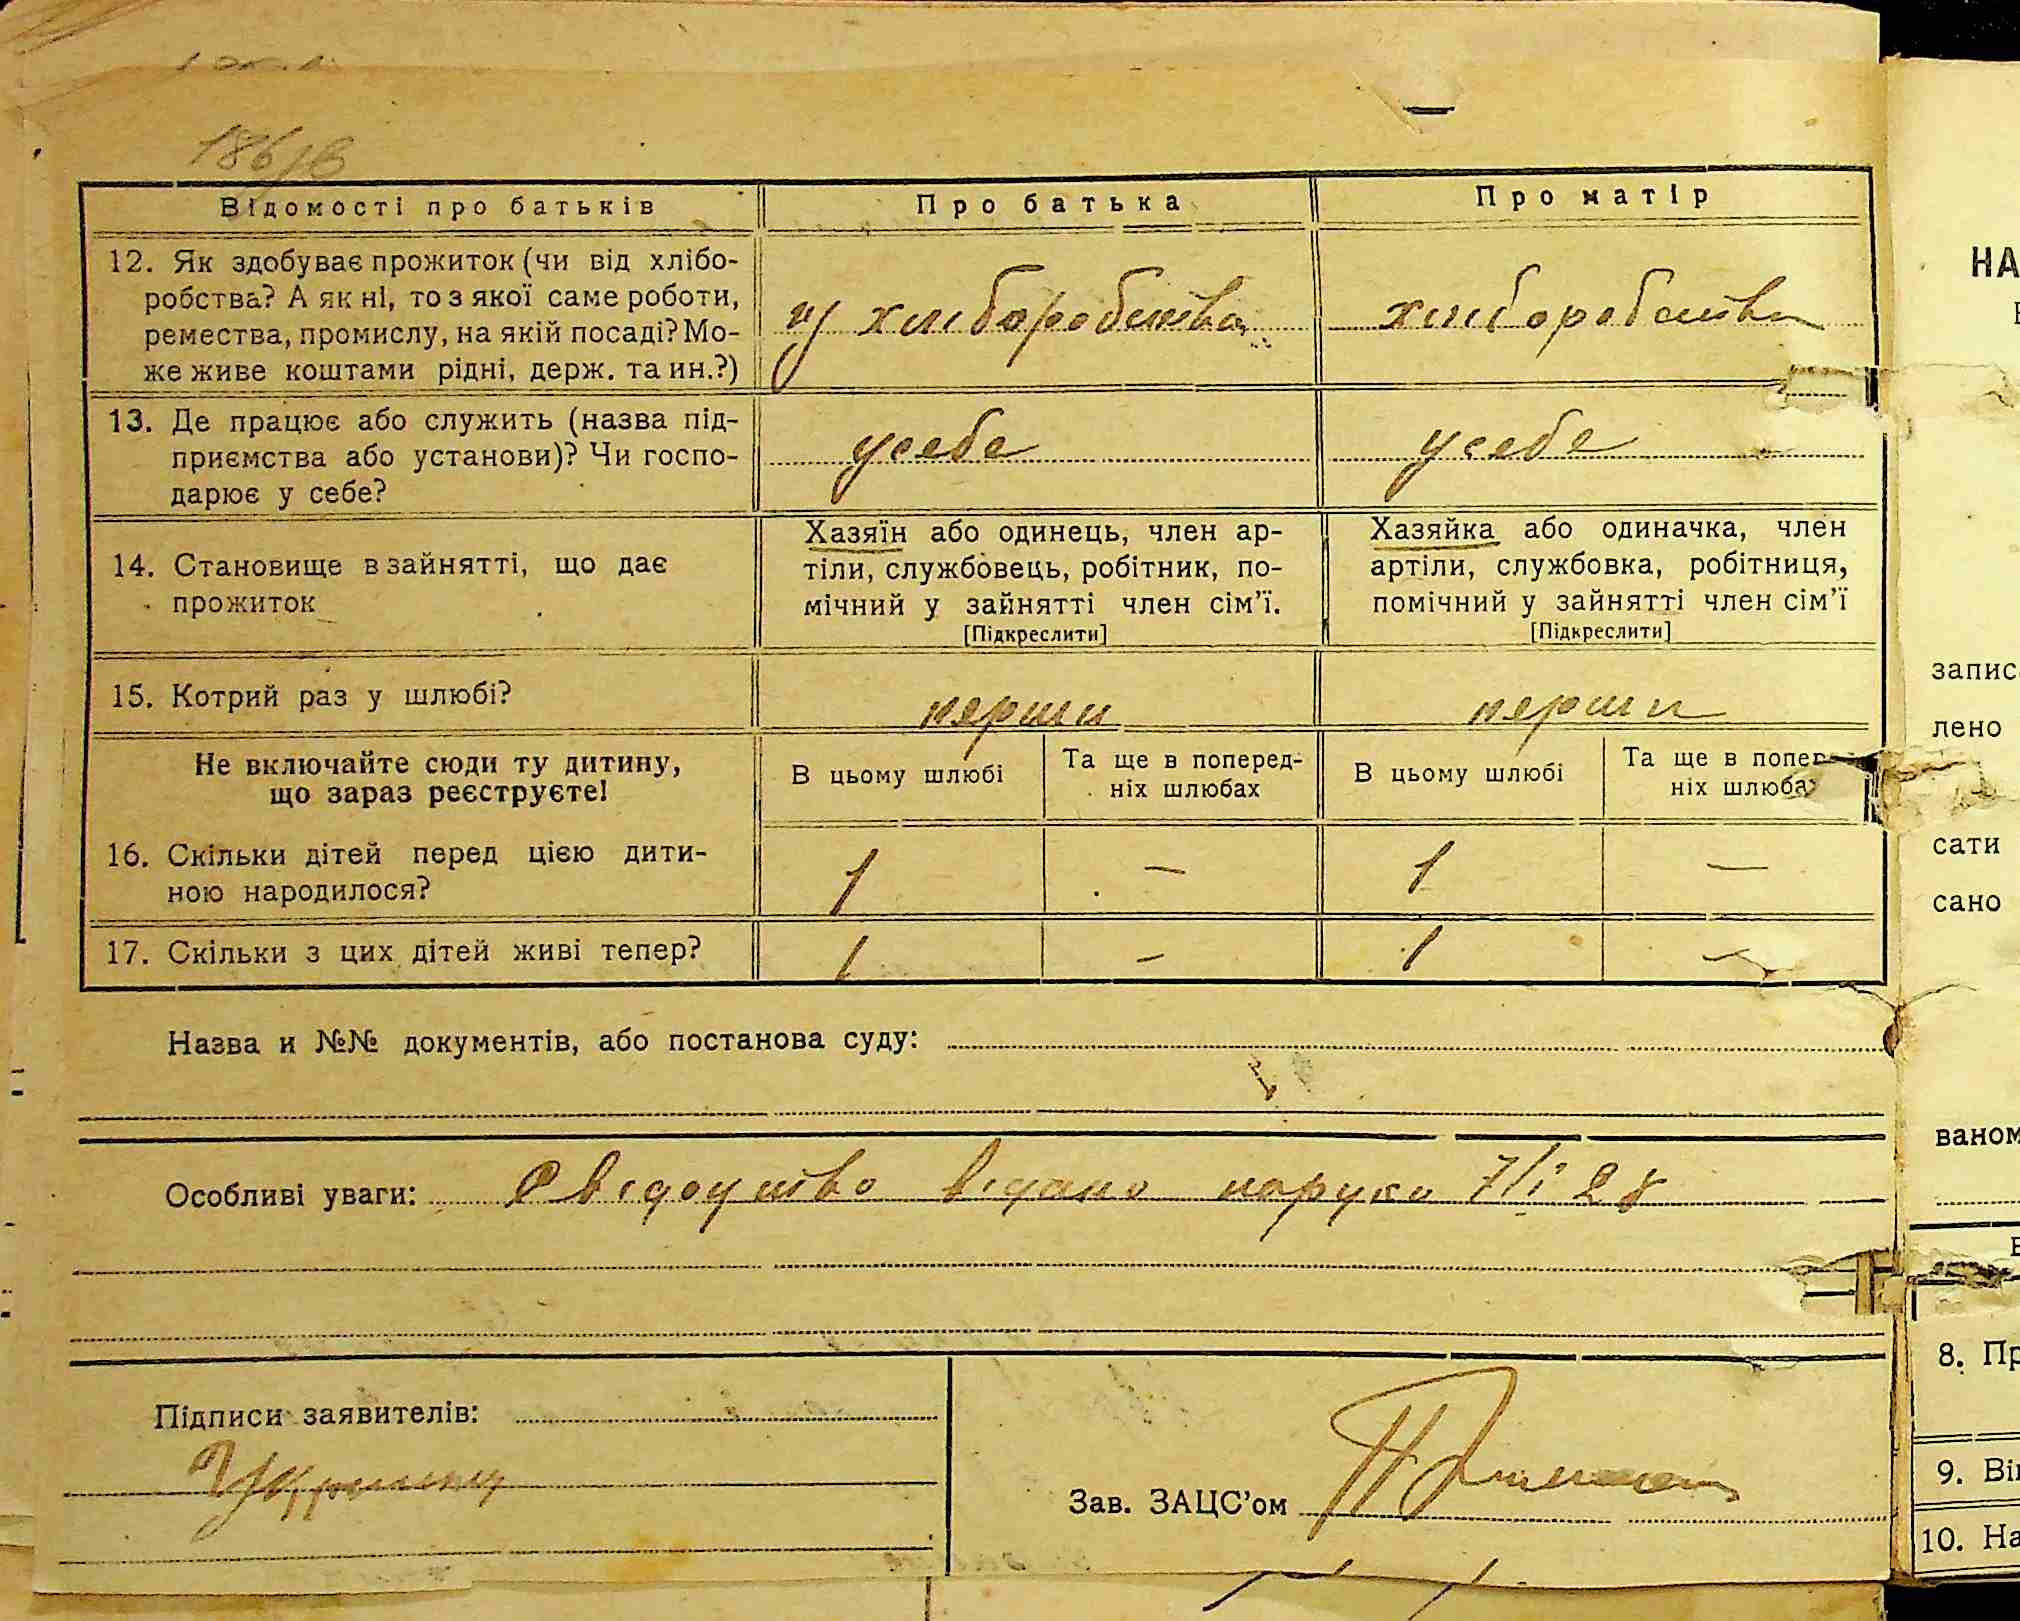 186/в
Відомості про батьків Про батька Про матір
12. Як здобуває прожиток (чи від хлібо-
робства? А як ні, то з якої саме роботи,
ремества, промислу, на якій посаді? Мо-
же живе коштами рідні, держ. та ин.?)
з хліборобства хліборобства
13. Де працює або служить (назва під-
приємства або установи)? Чи госпо-
дарює у себе?
усебе усебе
14. Становище в зайнятті, що дає
прожиток
Хазяїн або одинець, член ар-
тіли, службовець, робітник, по-
мічний у зайнятті член сім'ї.
[Підкреслити]
Хазяйка або одиначка, член
артіли, службовка, робітниця,
помічний у зайнятті член сім'ї
[Підкреслити]
15. Котрий раз у шлюбі? перши перши
Не включайте сюди ту дитину,
що зараз реєструєте!
В цьому шлюбі Та ще в поперед-
ніх шлюбах
В цьому шлюбі Та ще в попер
ніх шлюба
16. Скільки дітей перед цією дити-
ною народилося?
1 — 1 —
17. Скільки з цих дітей живі тепер? 1 — 1 —
Назва и №№ документів, або постанова суду:
Особливі уваги: Свідоцтво відано наруки 7/I 28
Підписи заявителів:
Зав. ЗАЦС'ом
НА
запис
лено
сати
сано
ваном
8. Пр
9. Ві
10. На